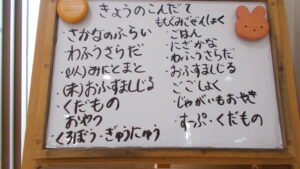 きょうのこんだて
さかなのふらい
わふうさらだ
(火)みにとまと
(木)おふすましじる
くだもの
おやつ
くろぼう・ぎゅうにゅう
もぐもぐごぜんしょく
・ごはん
・にざかな
・わふうさらだ
・おふすましじる
・ごごしょく
・じゃがいもおやき
・すーぷ・くだもの